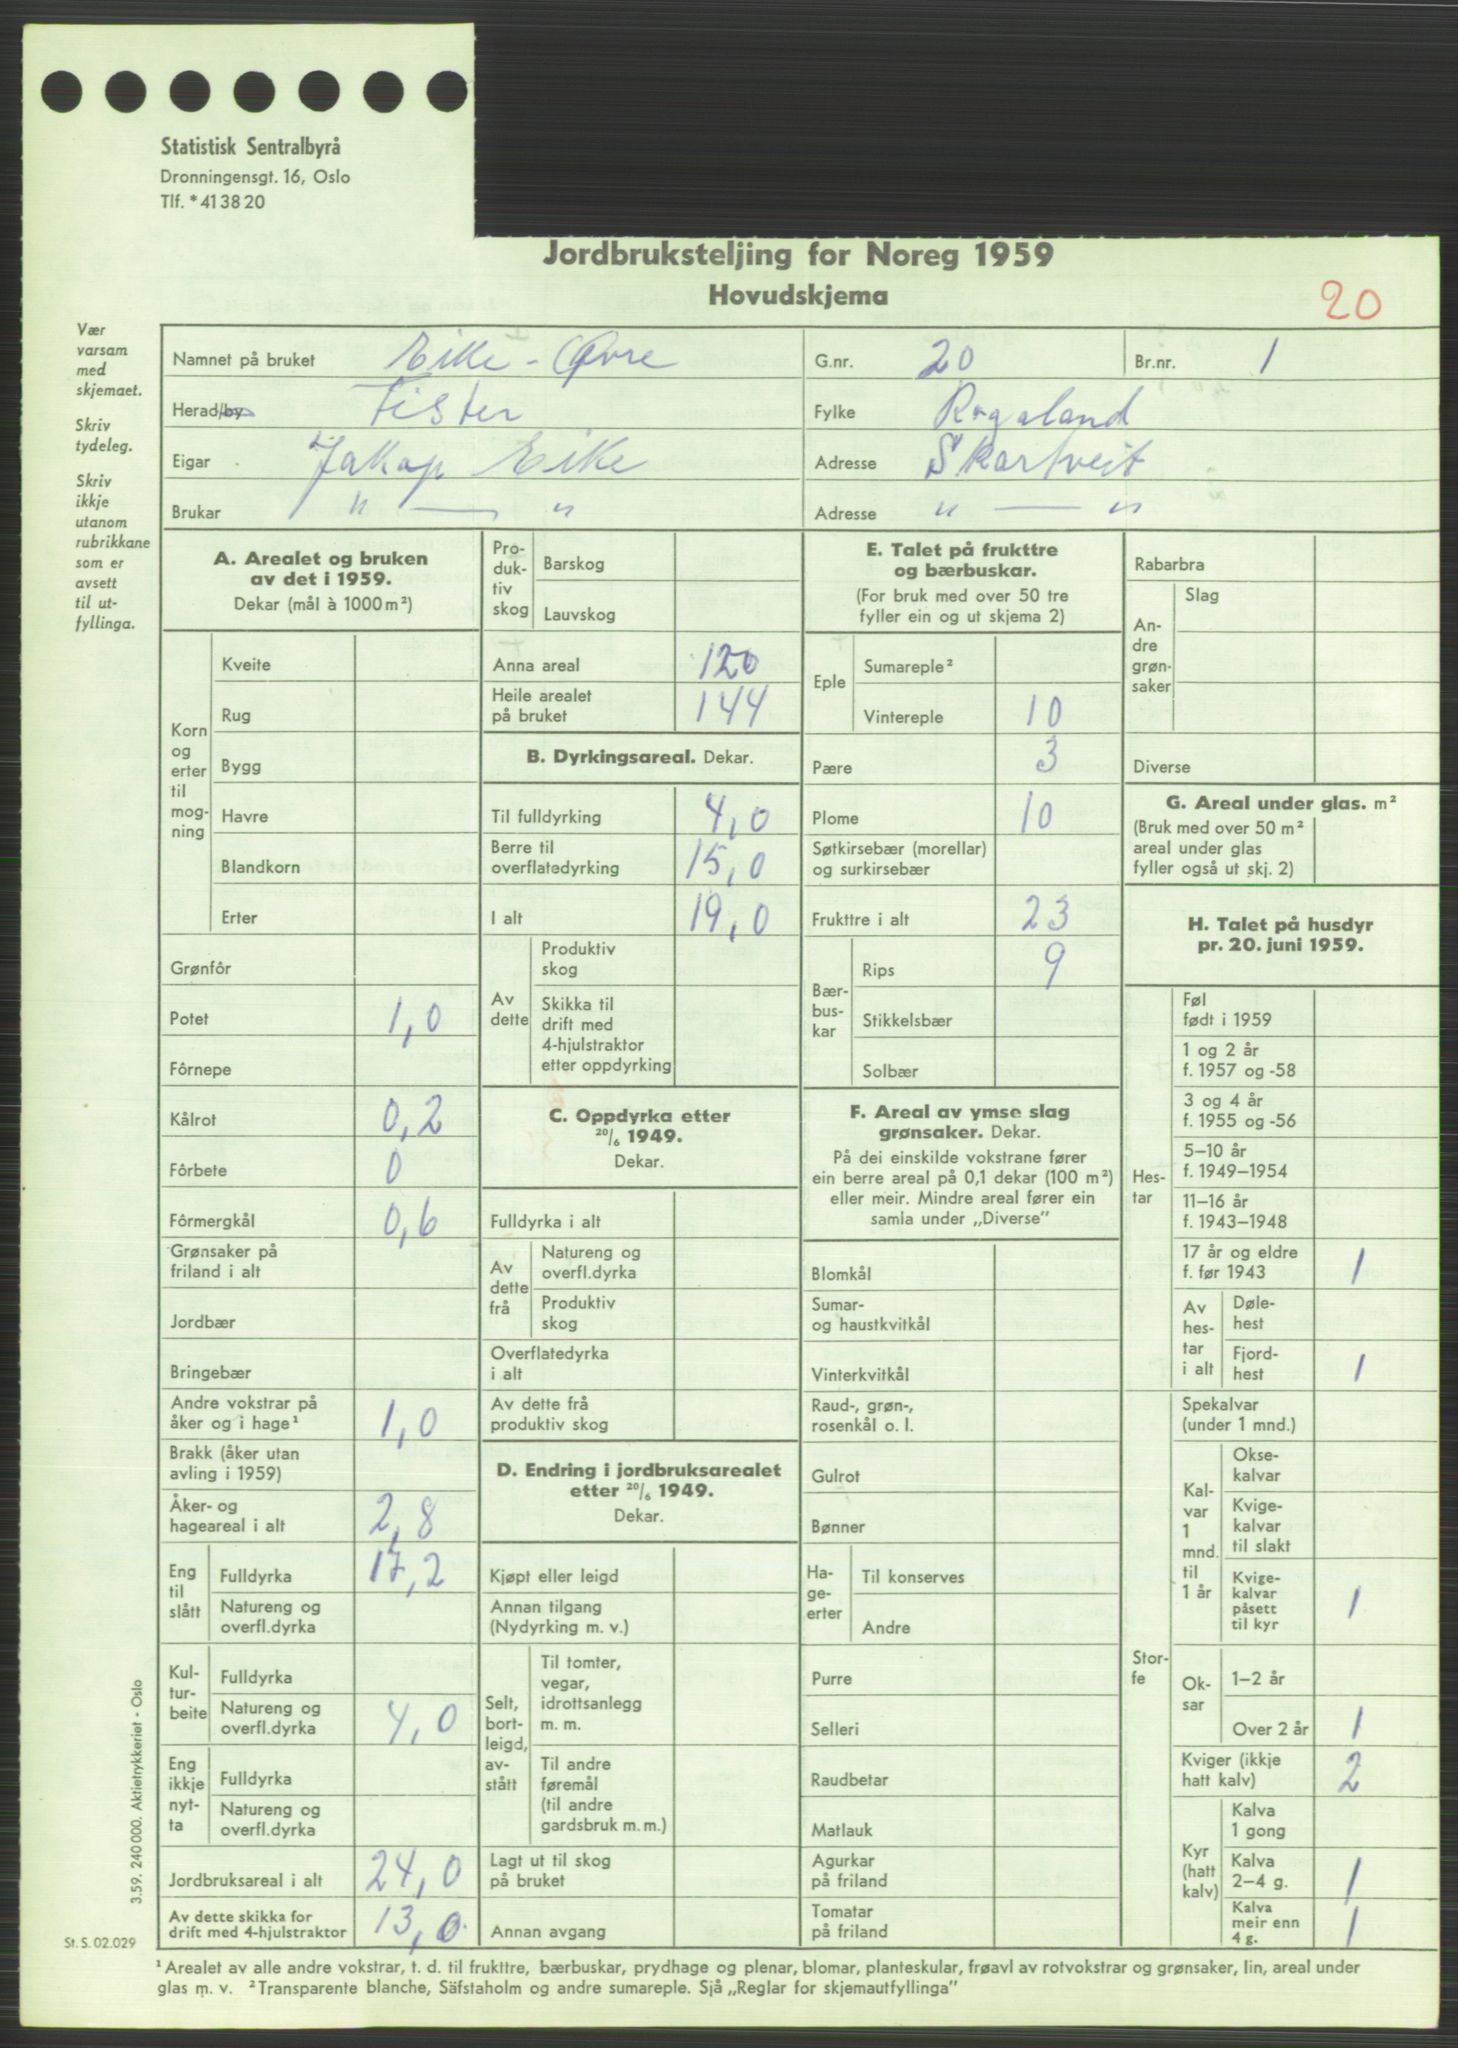 Statistisk Sentralbyrå
Dronningensgt. 16, Oslo
Tlf. * 41 38 20
Jordbruksteljing for Noreg 1959
Hovudskjema
20
Vær
varsam
med
skjemaet.
Skriv
tydeleg.
Skriv
ikkje
utanom
rubrikkane
som er
avsett
til ut-
fyllinga.
Namnet på bruket Eike - Øvre G.nr. 20 Br.nr. 1
Herad/by Fister Fylke Rogaland
Eigar Jakop Eike Adresse Skartveit
Brukar " — " Adresse " — "
A. Arealet og bruken
av det i 1959.
Dekar (mål à 1000 m²)
Korn
og
erter
til
mog-
ning
Kveite
Rug
Bygg
Havre
Blandkorn
Erter
Grønfôr
Potet 1,0
Fôrnepe
Kålrot 0,2
Fôrbete 0
Fôrmergkål 0,6
Grønsaker på
friland i alt
Jordbær
Bringebær
Andre vokstrar på
åker og i hage¹ 1,0
Brakk (åker utan
avling i 1959)
Åker- og
hageareal i alt 2,8
Eng
til
slått
Fulldyrka 17,2
Natureng og
overfl.dyrka
Kul-
tur-
beite
Fulldyrka
Natureng og
overfl.dyrka 4,0
Eng
ikkje
nyt-
ta
Fulldyrka
Natureng og
overfl.dyrka
Jordbruksareal i alt 24,0
Av dette skikka for
drift med 4-hjulstraktor 13,0
Pro-
duk-
tiv
skog
Barskog
Lauvskog
Anna areal 120
Heile arealet
på bruket 144
B. Dyrkingsareal. Dekar.
Til fulldyrking 4,0
Berre til
overflatedyrking 15,0
I alt 19,0
Av
dette
Produktiv
skog
Skikka til
drift med
4-hjulstraktor
etter oppdyrking
C. Oppdyrka etter
20/6 1949.
Dekar.
Fulldyrka i alt
Av
dette
frå
Natureng og
overfl.dyrka
Produktiv
skog
Overflatedyrka
i alt
Av dette frå
produktiv skog
D. Endring i jordbruksarealet
etter 20/6 1949.
Dekar.
Kjøpt eller leigd
Annan tilgang
(Nydyrking m. v.)
Selt,
bort-
leigd,
av-
stått
Til tomter,
vegar,
idrottsanlegg
m. m.
Til andre
føremål
(til andre
gardsbruk m. m.)
Lagt ut til skog
på bruket
Annan avgang
E. Talet på frukttre
og bærbuskar.
(For bruk med over 50 tre
fyller ein og ut skjema 2)
Eple
Sumareple²
Vintereple 10
Pære 3
Plome 10
Søtkirsebær (morellar)
og surkirsebær
Frukttre i alt 23
Bær-
bus-
kar
Rips 9
Stikkelsbær
Solbær
F. Areal av ymse slag
grønsaker. Dekar.
På dei einskilde vokstrane fører
ein berre areal på 0,1 dekar (100 m²)
eller meir. Mindre areal fører ein
samla under „Diverse”
Blomkål
Sumar-
og haustkvitkål
Vinterkvitkål
Raud-, grøn-,
rosenkål o. l.
Gulrot
Bønner
Ha-
ge-
erter
Til konserves
Andre
Purre
Selleri
Raudbetar
Matlauk
Agurkar
på friland
Tomatar
på friland
Rabarbra
An-
dre
grøn-
saker
Slag
Diverse
G. Areal under glas. m²
(Bruk med over 50 m²
areal under glas
fyller også ut skj. 2)
H. Talet på husdyr
pr. 20. juni 1959.
Hes-
tar
Føl
født i 1959
1 og 2 år
f. 1957 og -58
3 og 4 år
f. 1955 og -56
5–10 år
f. 1949–1954
11–16 år
f. 1943–1948
17 år og eldre
f. før 1943 1
Av
hes-
tar
i alt
Døle-
hest
Fjord-
hest 1
Stor-
fe
Spekalvar
(under 1 mnd.)
Kal-
var
1
mnd.
til
1 år
Okse-
kalvar
Kvige-
kalvar
til slakt
Kvige-
kalvar
påsett
til kyr 1
Ok-
sar
1–2 år
Over 2 år 1
Kviger (ikkje
hatt kalv) 2
Kyr
(hatt
kalv)
Kalva
1 gong
Kalva
2–4 g. 1
Kalva
meir enn
4 g. 1
3.59. 240 000. Aktietrykkeriet - Oslo
St. S. 02.029
¹ Arealet av alle andre vokstrar, t. d. til frukttre, bærbuskar, prydhage og plenar, blomar, planteskular, frøavl av rotvokstrar og grønsaker, lin, areal under
glas m. v. ² Transparente blanche, Säfstaholm og andre sumareple. Sjå „Reglar for skjemautfyllinga”